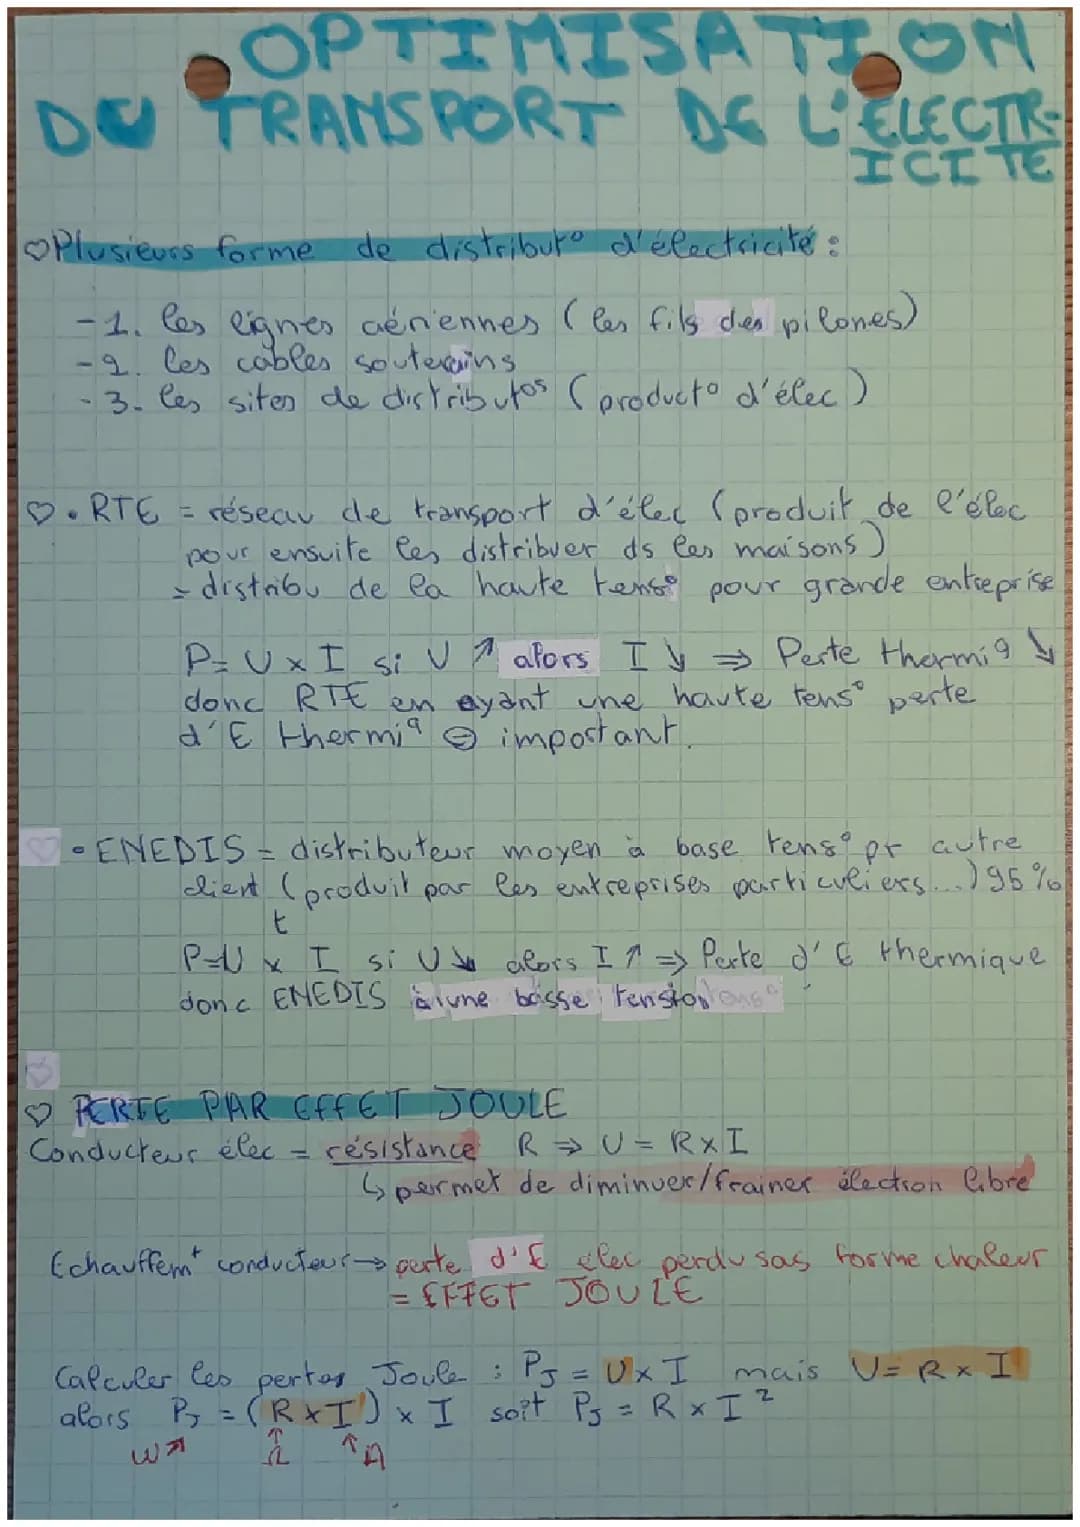 OPTIMISATION
DU TRANSPORT DE L'ELECTR-
ICITE
♡Plusieurs forme de distribut° d'électricité :
-1. les lignes aériennes (les fils des pilones)
-2. les cables souterains
-3. les sites de distribut°s (product° d'élec)
♡. RTE = réseau de transport d'élec (produit de l'élec
pour ensuite les distribuer ds les maisons)
= distribu de la haute tens° pour grande entreprise
P=U×I si U ↗ alors I ↘ ⇒ Perte thermiq ↘
donc RTE en ayant une haute tens° perte
d'E thermiq ⊖ important.
♡ • ENEDIS = distributeur moyen à base tens° pr autre
client (produit par les entreprises particuliers...) 95%
t
P=U × I si U ↘ alors I ↗ ⇒ Perte d'E thermique
donc ENEDIS à une basse tension tens°
♡
♡ PERTE PAR EFFET JOULE
Conducteur élec = résistance R ⇒ U = R×I
↳ permet de diminuer/frainer électron libre
Echauffemt conducteur → perte d'E élec perdu sas forme chaleur
= EFFET JOULE
Calculer les pertes Joule : PJ = U×I mais U= R×I
alors PJ = (R×I) × I soit PJ = R×I²
W↗ ↑ ↑
Ω A